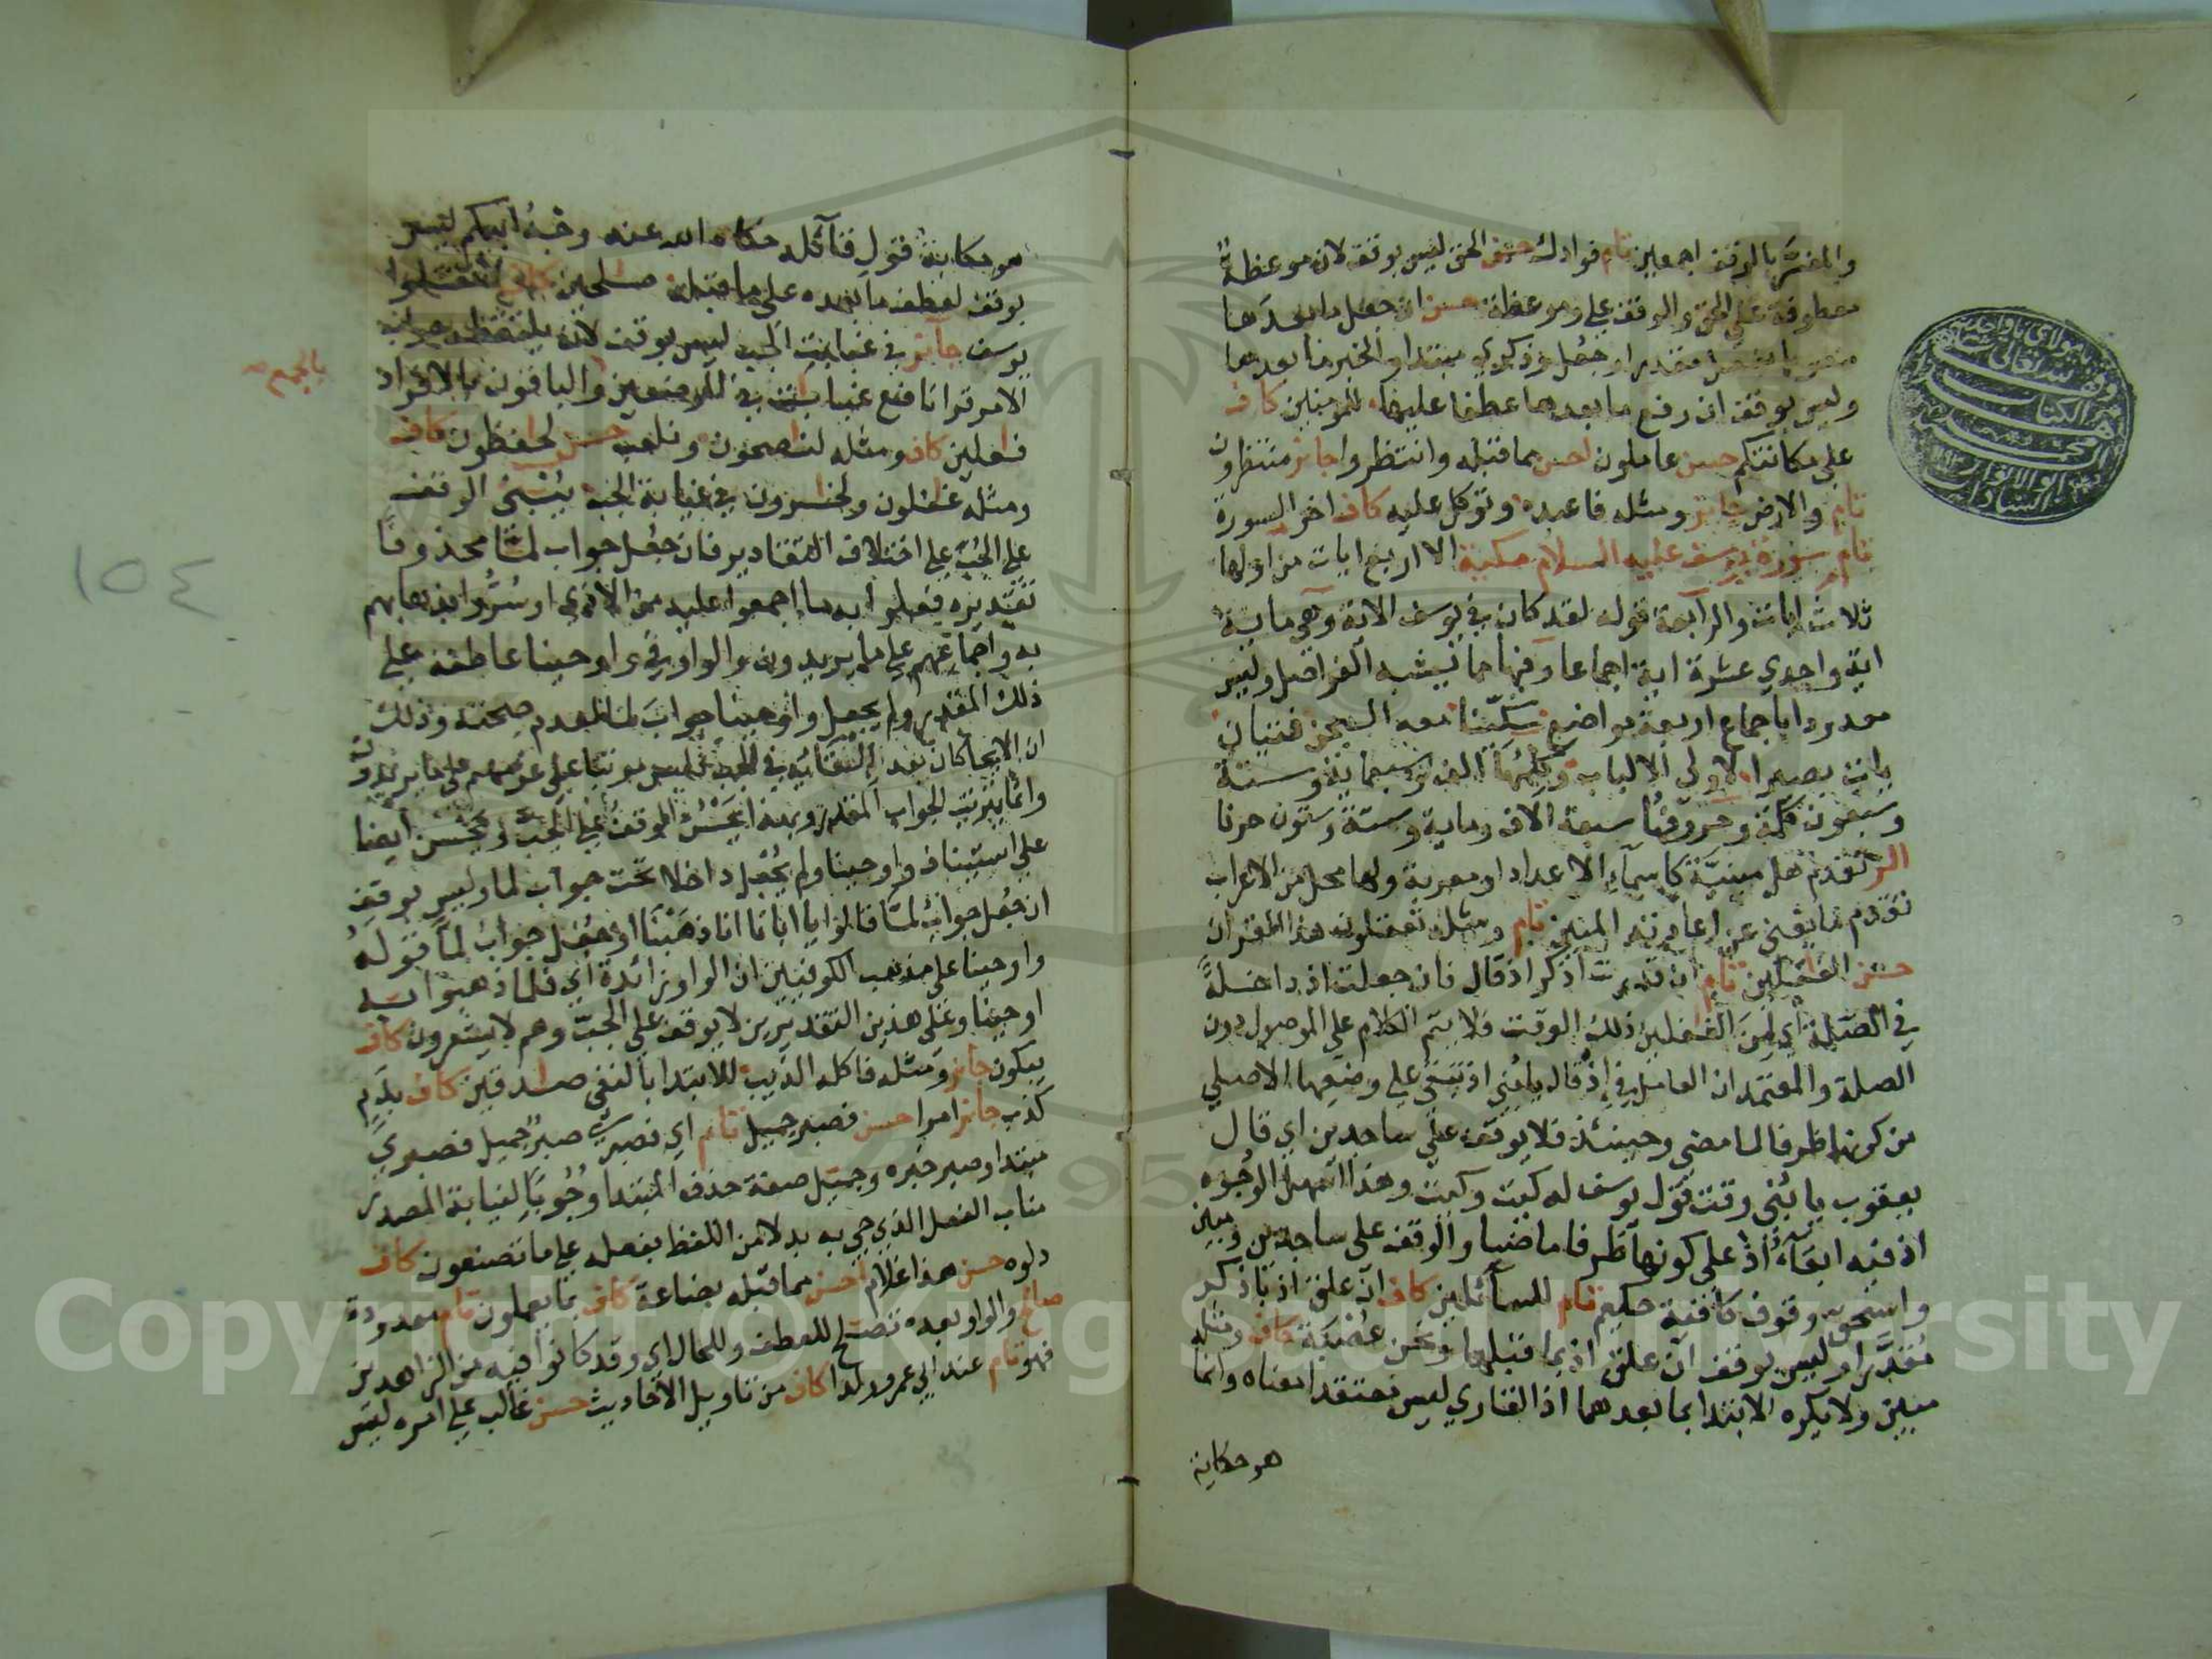 والمفسر بالوقف اجمعين تام فوادك حسن الحق ليس بوقف لان موعظة
معطوفة على الحق والوقف على وموعظة حسن ان جعل ما بعدها
منصوبا بفعل مقدر او جعل وذكرى مبتدا والخبر ما بعدها
وليس بوقف ان رفع ما بعدها عطفا عليها للمومنين كاف
على مكانتكم حسن عاملون احسن مما قبله وانتظروا جائز منتظرون
تام والارض جائز ومثله فاعبده وتوكل عليه كاف اخر السورة
تام سورة يوسف عليه السلام مكية الا اربع ايات من اولها
ثلاث ايات والرابعة قوله لقد كان في يوسف الاية وهي ماية
اية واحدي عشرة اية اجماعا وفيها مما يشبه الفواصل وليس
معدودا باجماع اربعة مواضع سكينا معه السجن فتيان
يات بصيرا لاولى الالباب وكلمها الف وسبعماية وستة
وسبعون كلمة وحروفها سبعة الاف وماية وستة وستون حرفا
الر تقدم هل مبنية كاسماء الاعداد او معربة ولها محل من الاعراب
تقدم ما يغني عن اعادته المبين تام ومثله تعقلون هذا القران
حسن الغفلين تام ان قدرت اذكر اذ قال فان جعلت اذ داخلة
في الصلة اي لمن الغفلين ذلك الوقت فلا يتم الكلام على الموصول دون
الصلة والمعتمد ان العامل في اذ قال يا بني اذ تبقى على وضعها الاصلي
من كونها ظرفا لما مضى وحينئذ فلا يوقف على ساجدين اي قال
يعقوب يا بني وقت قول يوسف له كيت وكيت وهذا اسهل الوجوه
اذ فيه ابقاء اذ على كونها ظرفا ماضيا والوقف على ساجدين ومبين
واسحق وقوف كافية حكيم تام للسائلين كاف ان علق اذ باذكر
مقدرا وليس بوقف ان علق اذ بما قبلها ونحن عصبة كاف ومثله
مبين ولا يكره الابتدا بما بعدهما اذ القاري ليس معتقدا معناه وانما
هو حكاية
هو حكاية قول قائله حكاه الله عنه وجه ابيكم ليس
بوقف لعطف ما بعده على ما قبله صلحين كاف لا تقتلوا
يوسف جائز في غيابت الجب ليس بوقف لان يلتقطه جواب
الامر قرا نافع غيابات في الموضعين والباقون بالافراد
فعلين كاف ومثله لنصحون ونلعب حسن لحفظون كاف
ومثله غفلون ولخسرون في غيابة الجب يبنى الوقف
على الجب على اختلاف التقادير فان جعل جواب لما محذوفا
تقديره فعلوا به ما اجمعوا عليه من الاذى او سروا بذهابهم
به واجماعهم على ما يريدون والواو في واوحينا عاطفة على
ذلك المقدر ولم يجعل واوحينا جواب لما لعدم صحته وذلك
ان الايحا كان بعد القائه في الجب فليس مرتبا على عزمهم على ما يريدون
وانما يترتب الجواب المقدر وبهذا يحسن الوقف على الجب ويحسن ايضا
على استيناف واوحينا ولم يجعل داخلا تحت جواب لما وليس بوقف
ان جعل جواب لما قالوا يا ابانا انا ذهبنا او جعل جواب لما قوله
واوحينا على مذهب الكوفيين ان الواو زائدة اي فلما ذهبوا به
اوحينا وعلى هذين التقديرين لا يوقف على الجب وهم لا يشعرون كاف
يبكون جائز ومثله فاكله الذيب للابتدا بالنفي صدقين كاف بدم
كذب جائز امرا حسن فصبر جميل تام اي فصبري صبر جميل فصبري
مبتدا وصبر خبره وجميل صفة حذف المبتدا وجوبا لنيابة المصدر
مناب الفعل الذي جي به بدلا من اللفظ بفعله على ما تصنعون كاف
دلوه حسن هذا غلام احسن مما قبله بضاعة كاف بما يعملون تام معدودة
صالح والواو بعده تصلح للعطف وللحال اي وقد كانوا فيه من الزاهدين
فهو تام عند ابي عمرو ولدا كاف من تاويل الاحاديث حسن غالب على امره ليس
بالجمع
١٥٤
Copyright © King Saud University